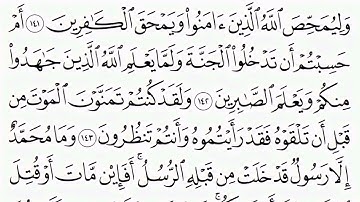 وَلِيُمَحِّصَ ٱللَّهُ ٱلَّذِينَ ءَامَنُوا۟ وَيَمْحَقَ ٱلْكَٰفِرِينَ ١٤١ أَمْ
حَسِبْتُمْ أَن تَدْخُلُوا۟ ٱلْجَنَّةَ وَلَمَّا يَعْلَمِ ٱللَّهُ ٱلَّذِينَ جَٰهَدُوا۟
مِنكُمْ وَيَعْلَمَ ٱلصَّٰبِرِينَ ١٤٢ وَلَقَدْ كُنتُمْ تَمَنَّوْنَ ٱلْمَوْتَ مِن
قَبْلِ أَن تَلْقَوْهُ فَقَدْ رَأَيْتُمُوهُ وَأَنتُمْ تَنظُرُونَ ١٤٣ وَمَا مُحَمَّدٌ
إِلَّا رَسُولٌ قَدْ خَلَتْ مِن قَبْلِهِ ٱلرُّسُلُ ۚ أَفَإِي۟ن مَّاتَ أَوْ قُتِلَ